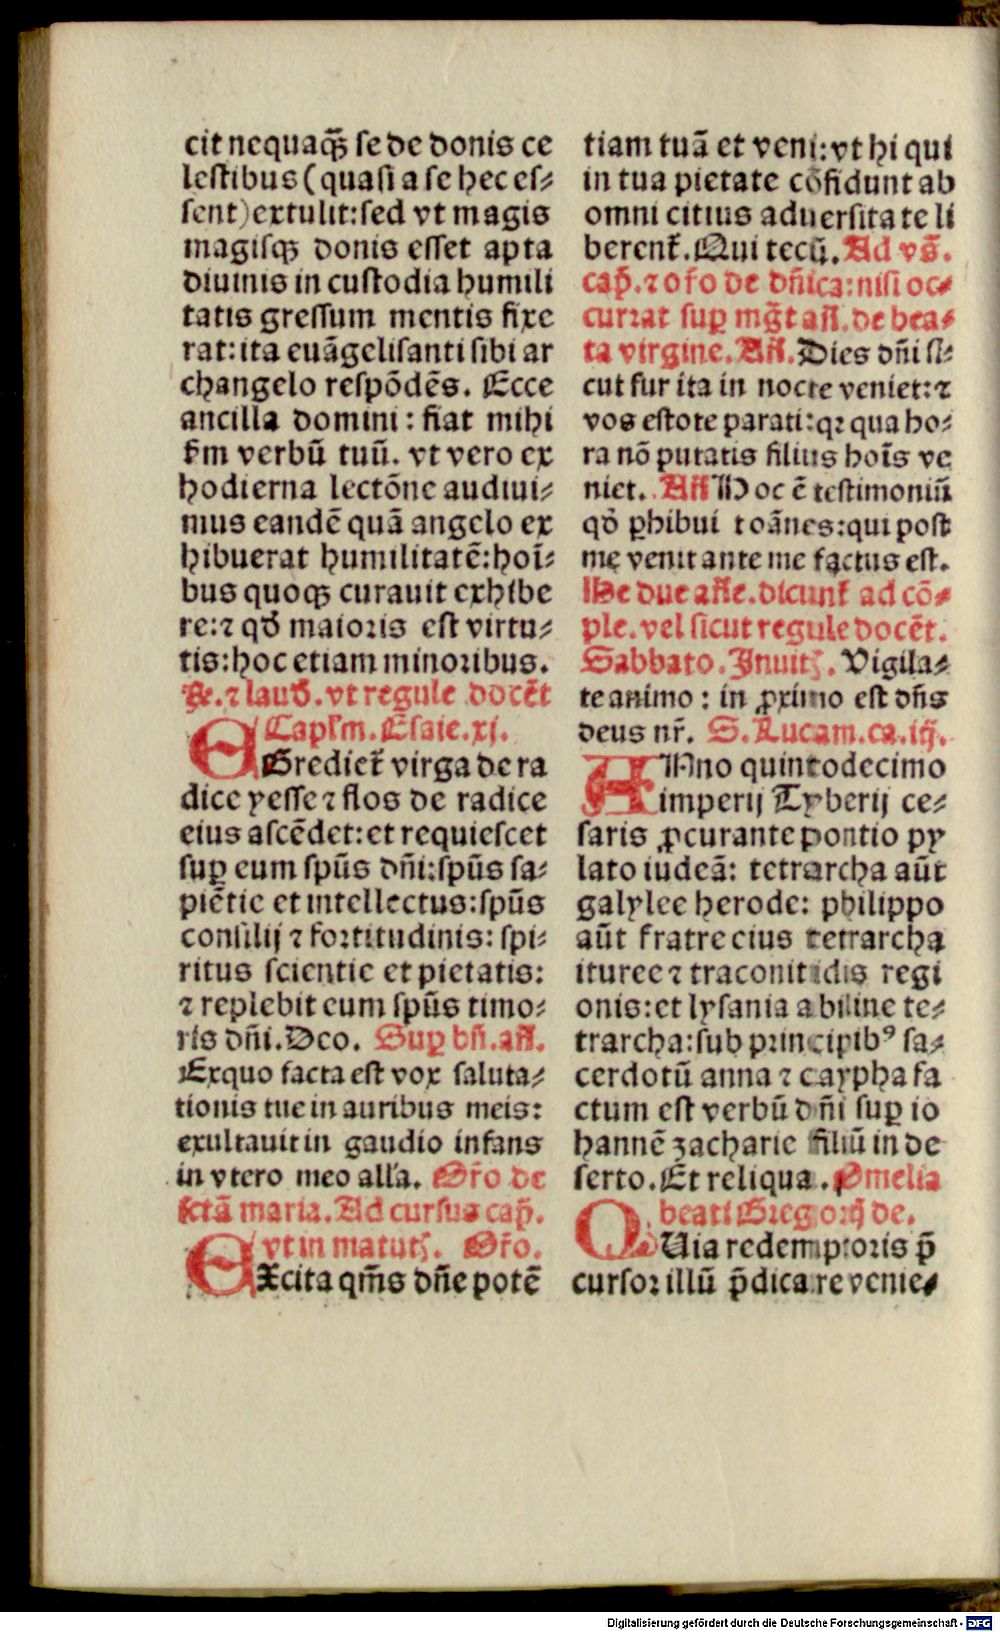 cit nequaqȝ se de donis ce
lestibus (quasi a se hec es⸗
sent) extulit: sed vt magis
magisqȝ donis esset apta
diuinis in custodia humili
tatis gressum mentis fixe
rat: ita euāgelisanti sibi ar
changelo respōdēs. Ecce
ancilla domini: fiat mihi
s̄m verbū tuū. vt vero ex
hodierna lectōne audiui⸗
mus eandē quā angelo ex
hibuerat humilitatē: hoīs⸗
bus quoqȝ curauit exhibe
re: ⁊ qd̄ maioris est virtu⸗
tis: hoc etiam minoribus.
℟. ⁊ laud̄. vt regule docēt
Capl̄m. Esaie. xj.
EGrediet̄ virga de ra
dice yesse ⁊ flos de radice
eius ascēdet: et requiescet
sup̱ eum spūs dn̄i: spūs sa⸗
piētie et intellectus: spūs
consilij ⁊ fortitudinis: spi⸗
ritus scientie et pietatis:
⁊ replebit eum spūs timo⸗
ris dn̄i. Deo. Sup̱ bn̄. an̄.
Exquo facta est vox saluta⸗
tionis tue in auribus meis:
exultauit in gaudio infans
in vtero meo alla. Or̄o de
sctā maria. Ad cursus cap̄.
vt in matutꝭ. Or̄o.
EXcita qm̄s dn̄e potē
tiam tuā et veni: vt hi qui
in tua pietate cōfidunt ab
omni citius aduersitate li
berent̄. Qui tecū. Ad vs̄.
cap̄. ⁊ oro de dn̄ica: nisi oc⸗
currat sup̱ mḡt an̄. de bea⸗
ta virgine. An̄. Dies dn̄i si⸗
cut fur ita in nocte veniet: ⁊
vos estote parati: qꝛ qua ho⸗
ra nō putatis filius hoīs ve
niet. An̄ Hoc ē testimoniū
qd̄ ꝑhibui ioānes: qui post
me venit ante me factus est.
He due an̄e. dicunt̄ ad cō⸗
ple. vel sicut regule docēt.
Sabbato. Inuitꝭ. Vigila⸗
te animo: in ꝓximo est dn̄s
deus nr̄. S. Lucam. ca. iij.
ANno quintodecimo
imperij Tyberij ce⸗
saris ꝓcurante pontio py
lato iudeā: tetrarcha aūt
galylee herode: philippo
aūt fratre eius tetrarcha
ituree ⁊ traconitidis regi
onis: et lysania abiline te⸗
trarcha: sub principibꝰ sa⸗
cerdotū anna ⁊ caypha fa
ctum est verbū dn̄i sup̱ io
hannē zacharie filiū in de
serto. Et reliqua. Omelia
beati Gregorij de.
QUia redemptoris p̄
cursor illū p̄dicare venie⸗
Digitalisierung gefördert durch die Deutsche Forschungsgemeinschaft - DFG